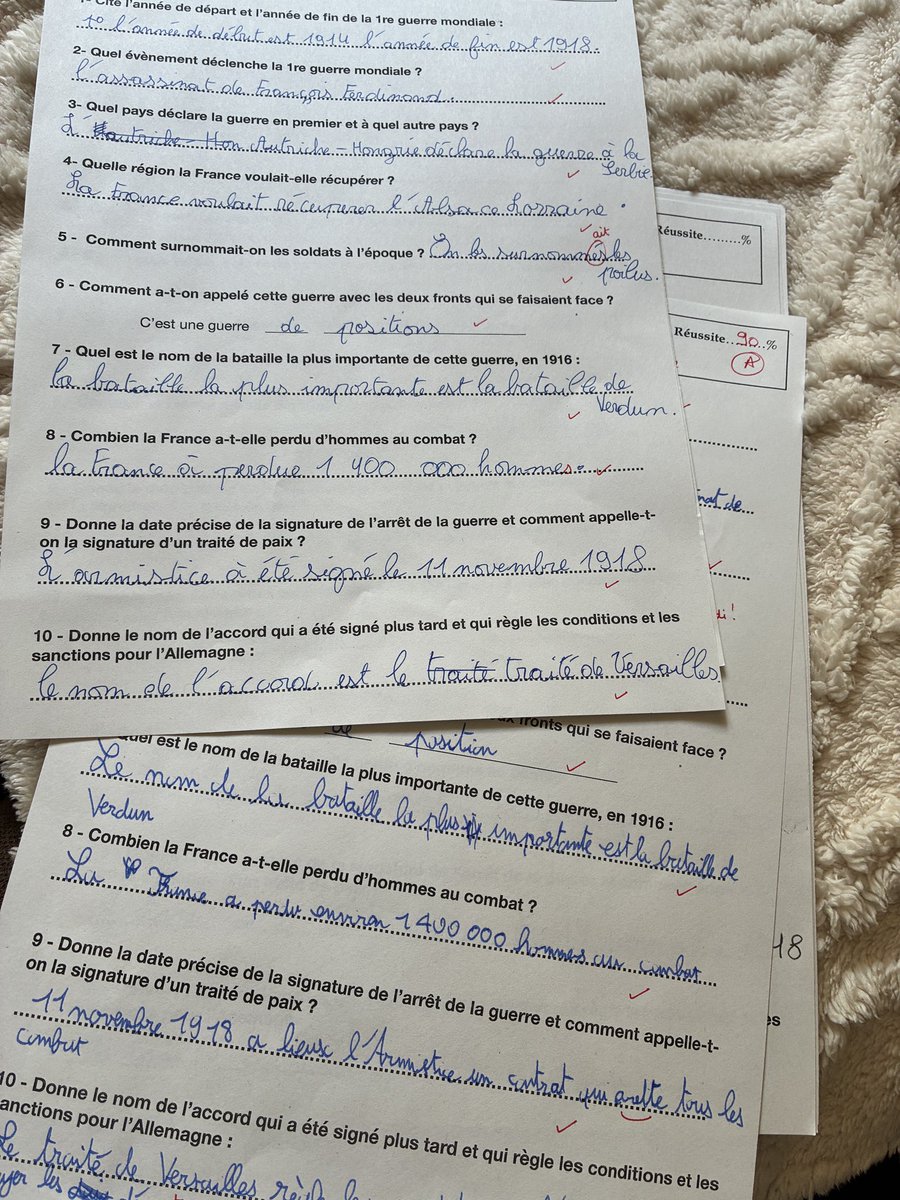 1- Cite l'année de départ et l'année de fin de la 1re guerre mondiale :
1º l'année de début est 1914 l'année de fin est 1918.
2- Quel évènement déclenche la 1re guerre mondiale ?
l'assassinat de François Ferdinand.
3- Quel pays déclare la guerre en premier et à quel autre pays ?
L' Autriche-Hongrie déclare la guerre à la
Serbie.
4- Quelle région la France voulait-elle récupérer ?
La France voulait récuperer l'Alsace Lorraine.
ait
5 - Comment surnommait-on les soldats à l'époque ? On les surnommés les
poilus.
6 - Comment a-t-on appelé cette guerre avec les deux fronts qui se faisaient face ?
C'est une guerre de positions
7 - Quel est le nom de la bataille la plus importante de cette guerre, en 1916 :
la bataille la plus importante est la bataille de
Verdun.
8 - Combien la France a-t-elle perdu d'hommes au combat ?
la france à perdue 1 400 000 hommes.
9 - Donne la date précise de la signature de l'arrêt de la guerre et comment appelle-t-
on la signature d'un traité de paix ?
L'armistice à été signé le 11 novembre 1918
10 - Donne le nom de l'accord qui a été signé plus tard et qui règle les conditions et les
sanctions pour l'Allemagne :
le nom de l'accord est le traité traité de Versailles
Réussite.........%
Réussite....90..%
A
nat de
di !
18
es
ux fronts qui se faisaient face ?
de position
uel est le nom de la bataille la plus importante de cette guerre, en 1916 :
Le nom de la bataille la plus importante est la bataille de
Verdun
8 - Combien la France a-t-elle perdu d'hommes au combat ?
La France a perdu environ 1 400 000 hommes au combat
9 - Donne la date précise de la signature de l'arrêt de la guerre et comment appelle-t-
on la signature d'un traité de paix ?
11 novembre 1918 a lieux l'Armistice un contrat qui arette tous les
combat
10 - Donne le nom de l'accord qui a été signé plus tard et qui règle les conditions et les
sanctions pour l'Allemagne :
Le traité de Versailles règle
yer les